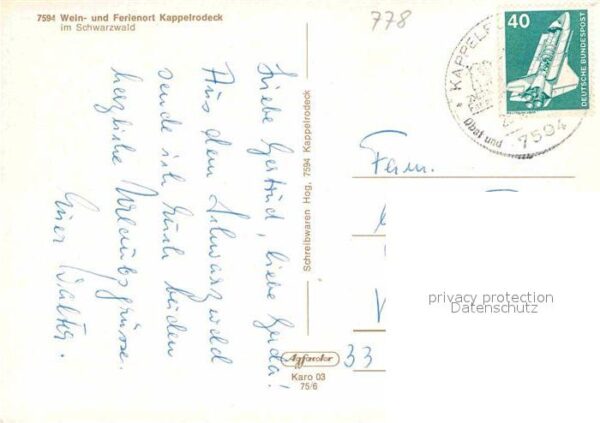 7594 Wein- und Ferienort Kappelrodeck
im Schwarzwald
778
Liebe Gertrud, liebe Gerda!
Aus dem Schwarzwald
sende ich Euch beiden
herzliche Urlaubsgrüsse.
Euer Walter.
Schreibwaren Hog, 7594 Kappelrodeck
40
DEUTSCHE BUNDESPOST
KAPPELR
Obst und
7594
Fam.
33
privacy protection
Datenschutz
Agfacolor
Karo 03
75/6